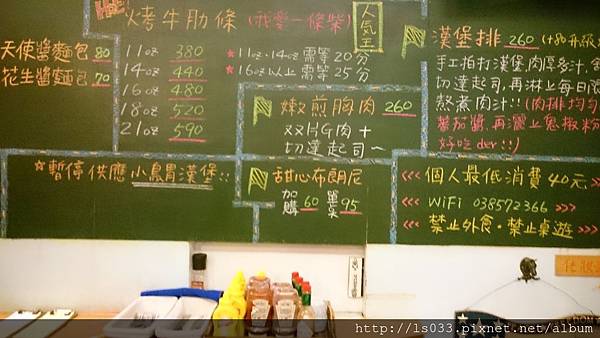 烤牛肋條 (我愛一條柴)
人氣王
11oz 380
14oz 440
16oz 480
18oz 520
21oz 590
★11oz.14oz 需等20分
★16oz以上 需等25分
天使醬麵包 80
花生醬麵包 70
嫩煎胸肉 260
双片G肉+
切達起司~
漢堡排 260 (+80升級
手工拍打漢堡,肉厚多汁,
切達起司,再淋上每日
熬煮肉汁!!(肉排均勻
蕃茄醬,再灑上息椒粉
好吃der!!)
☆暫停供應 小鳥胃漢堡::
甜心布朗尼
加購 60 單点 95
<<< 個人最低消費40元
<<< WiFi 038572366 >>>
<<< 禁止外食·禁止桌遊 >>>
http://ls033.pixnet.net/album